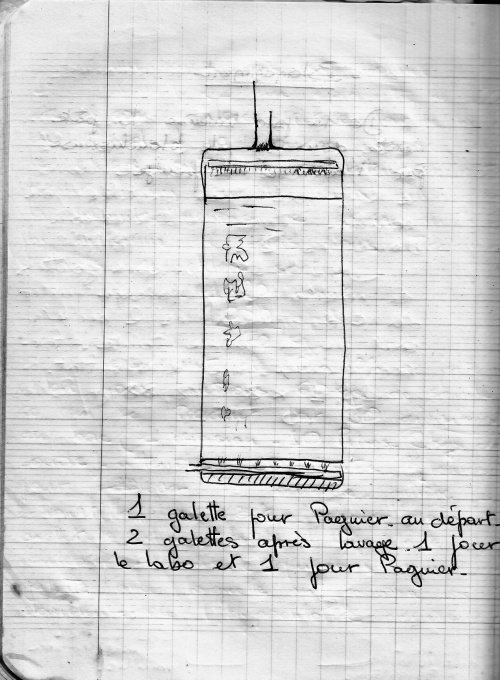 1 galette pour Pagnier. au départ.
2 galettes après lavage. 1 pour
le labo et 1 pour Pagnier.